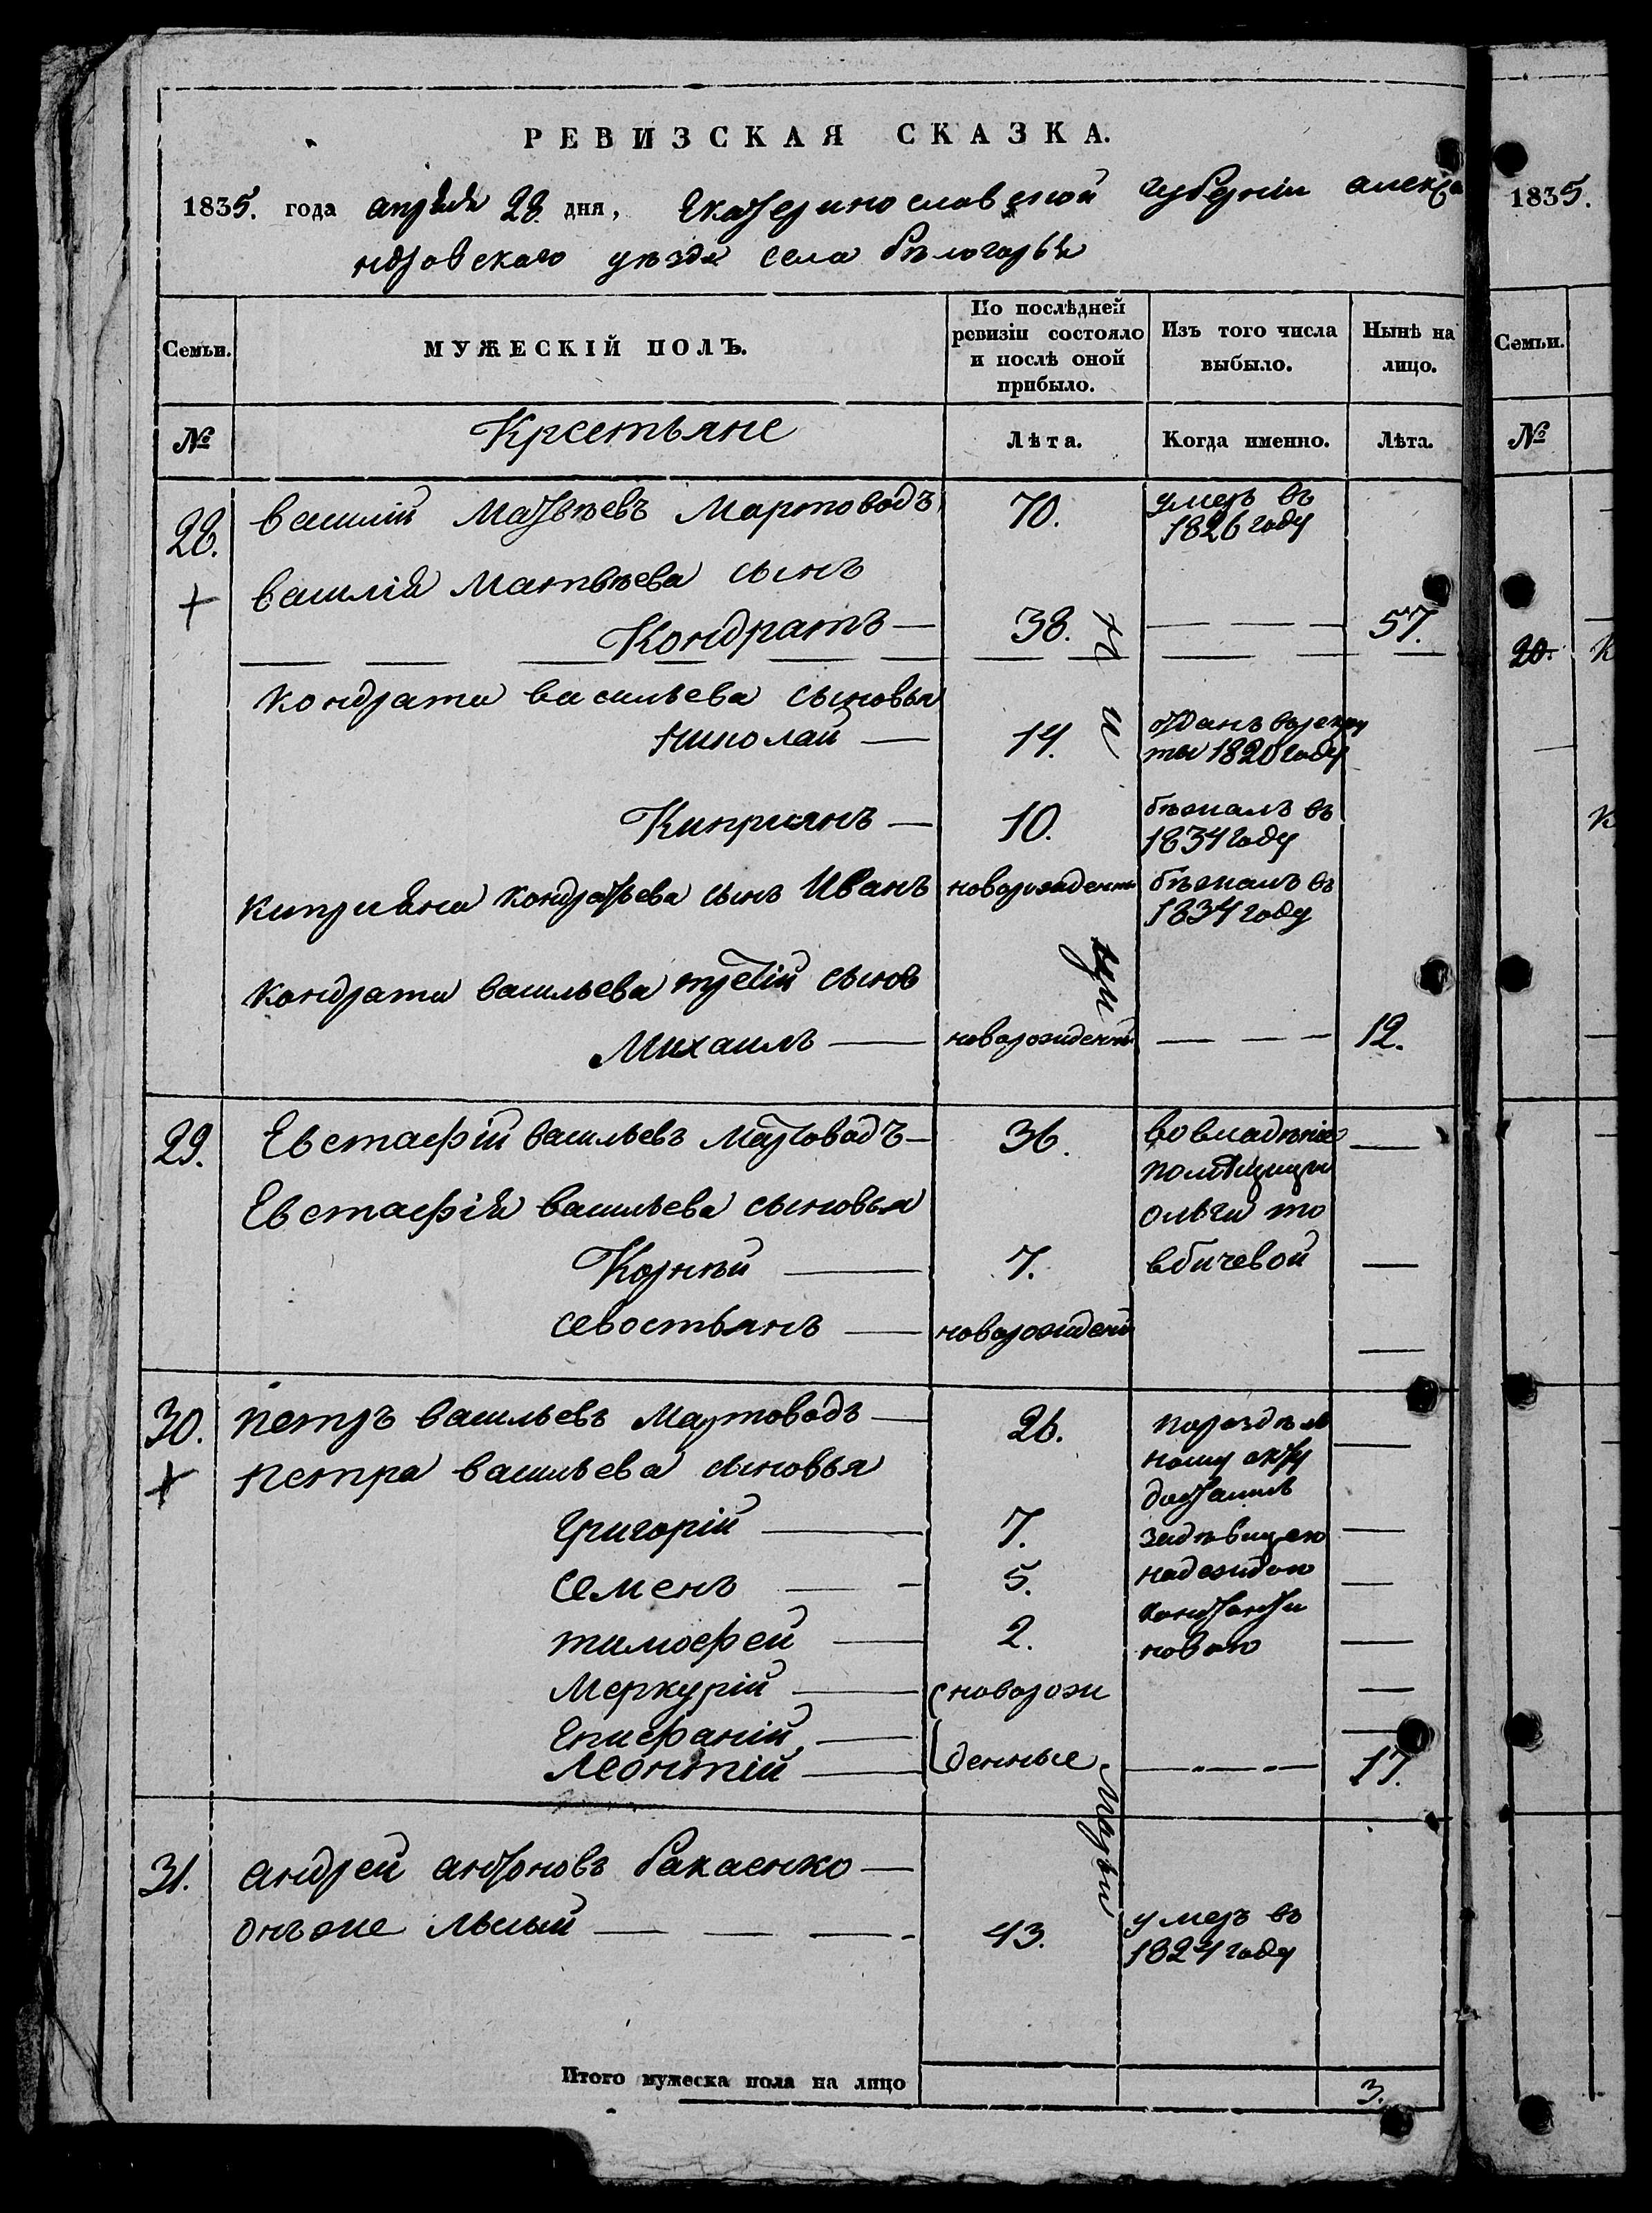 РЕВИЗСКАЯ СКАЗКА.
1835. года апреля 28 дня, Екатеринославской губерніи алекса
ндровского уезда села бѣлогорья
Семьи. МУЖЕСКІЙ ПОЛЪ. По послѣдней ревизіи состояло и послѣ оной прибыло. Изъ того числа выбыло. Нынѣ на лицо.
№ Крестьяне Лѣта. Когда именно. Лѣта.
28. василий Матвѣевъ Мартоводъ 70. умеръ въ
1826 году
василія Матвѣева сынъ
Кондратъ — 38. — — — 57.
кондрата васильева сыновья
Николай — 14. отданъ врекру
ты 1820 году
Киприянъ — 10. бѣжалъ въ
1834 году
киприяна кондратьева сынъ Иванъ новорожденны бѣжалъ въ
1834 году
кондрата васильева третій сынъ
Михаилъ — новорожденны — — — 12.
29. Евстафій васильевъ Мартоводъ — 36. вовладѣніе —
помѣщицы
Евстафія васильева сыновья ольги то
Корнѣй — 7. вбичевой —
севостьянъ — новорожден —
30. петръ васильевъ Мартоводъ — 26. пораздѣл —
ному акту
петра васильева сыновья —
досталъ
Григорій — 7. задѣвицею —
семенъ — 5. надеждою —
константи
тимофей — 2. новою —
Меркурій — новорож —
Епифаній — —
Леонтій — денные — — — 17.
31. андрей антоновъ бакаенко —
онъже лысый — — — 43. умеръ въ
1824 году
Итого мужеска пола на лицо 3.
1835.
Семьи.
№
20.